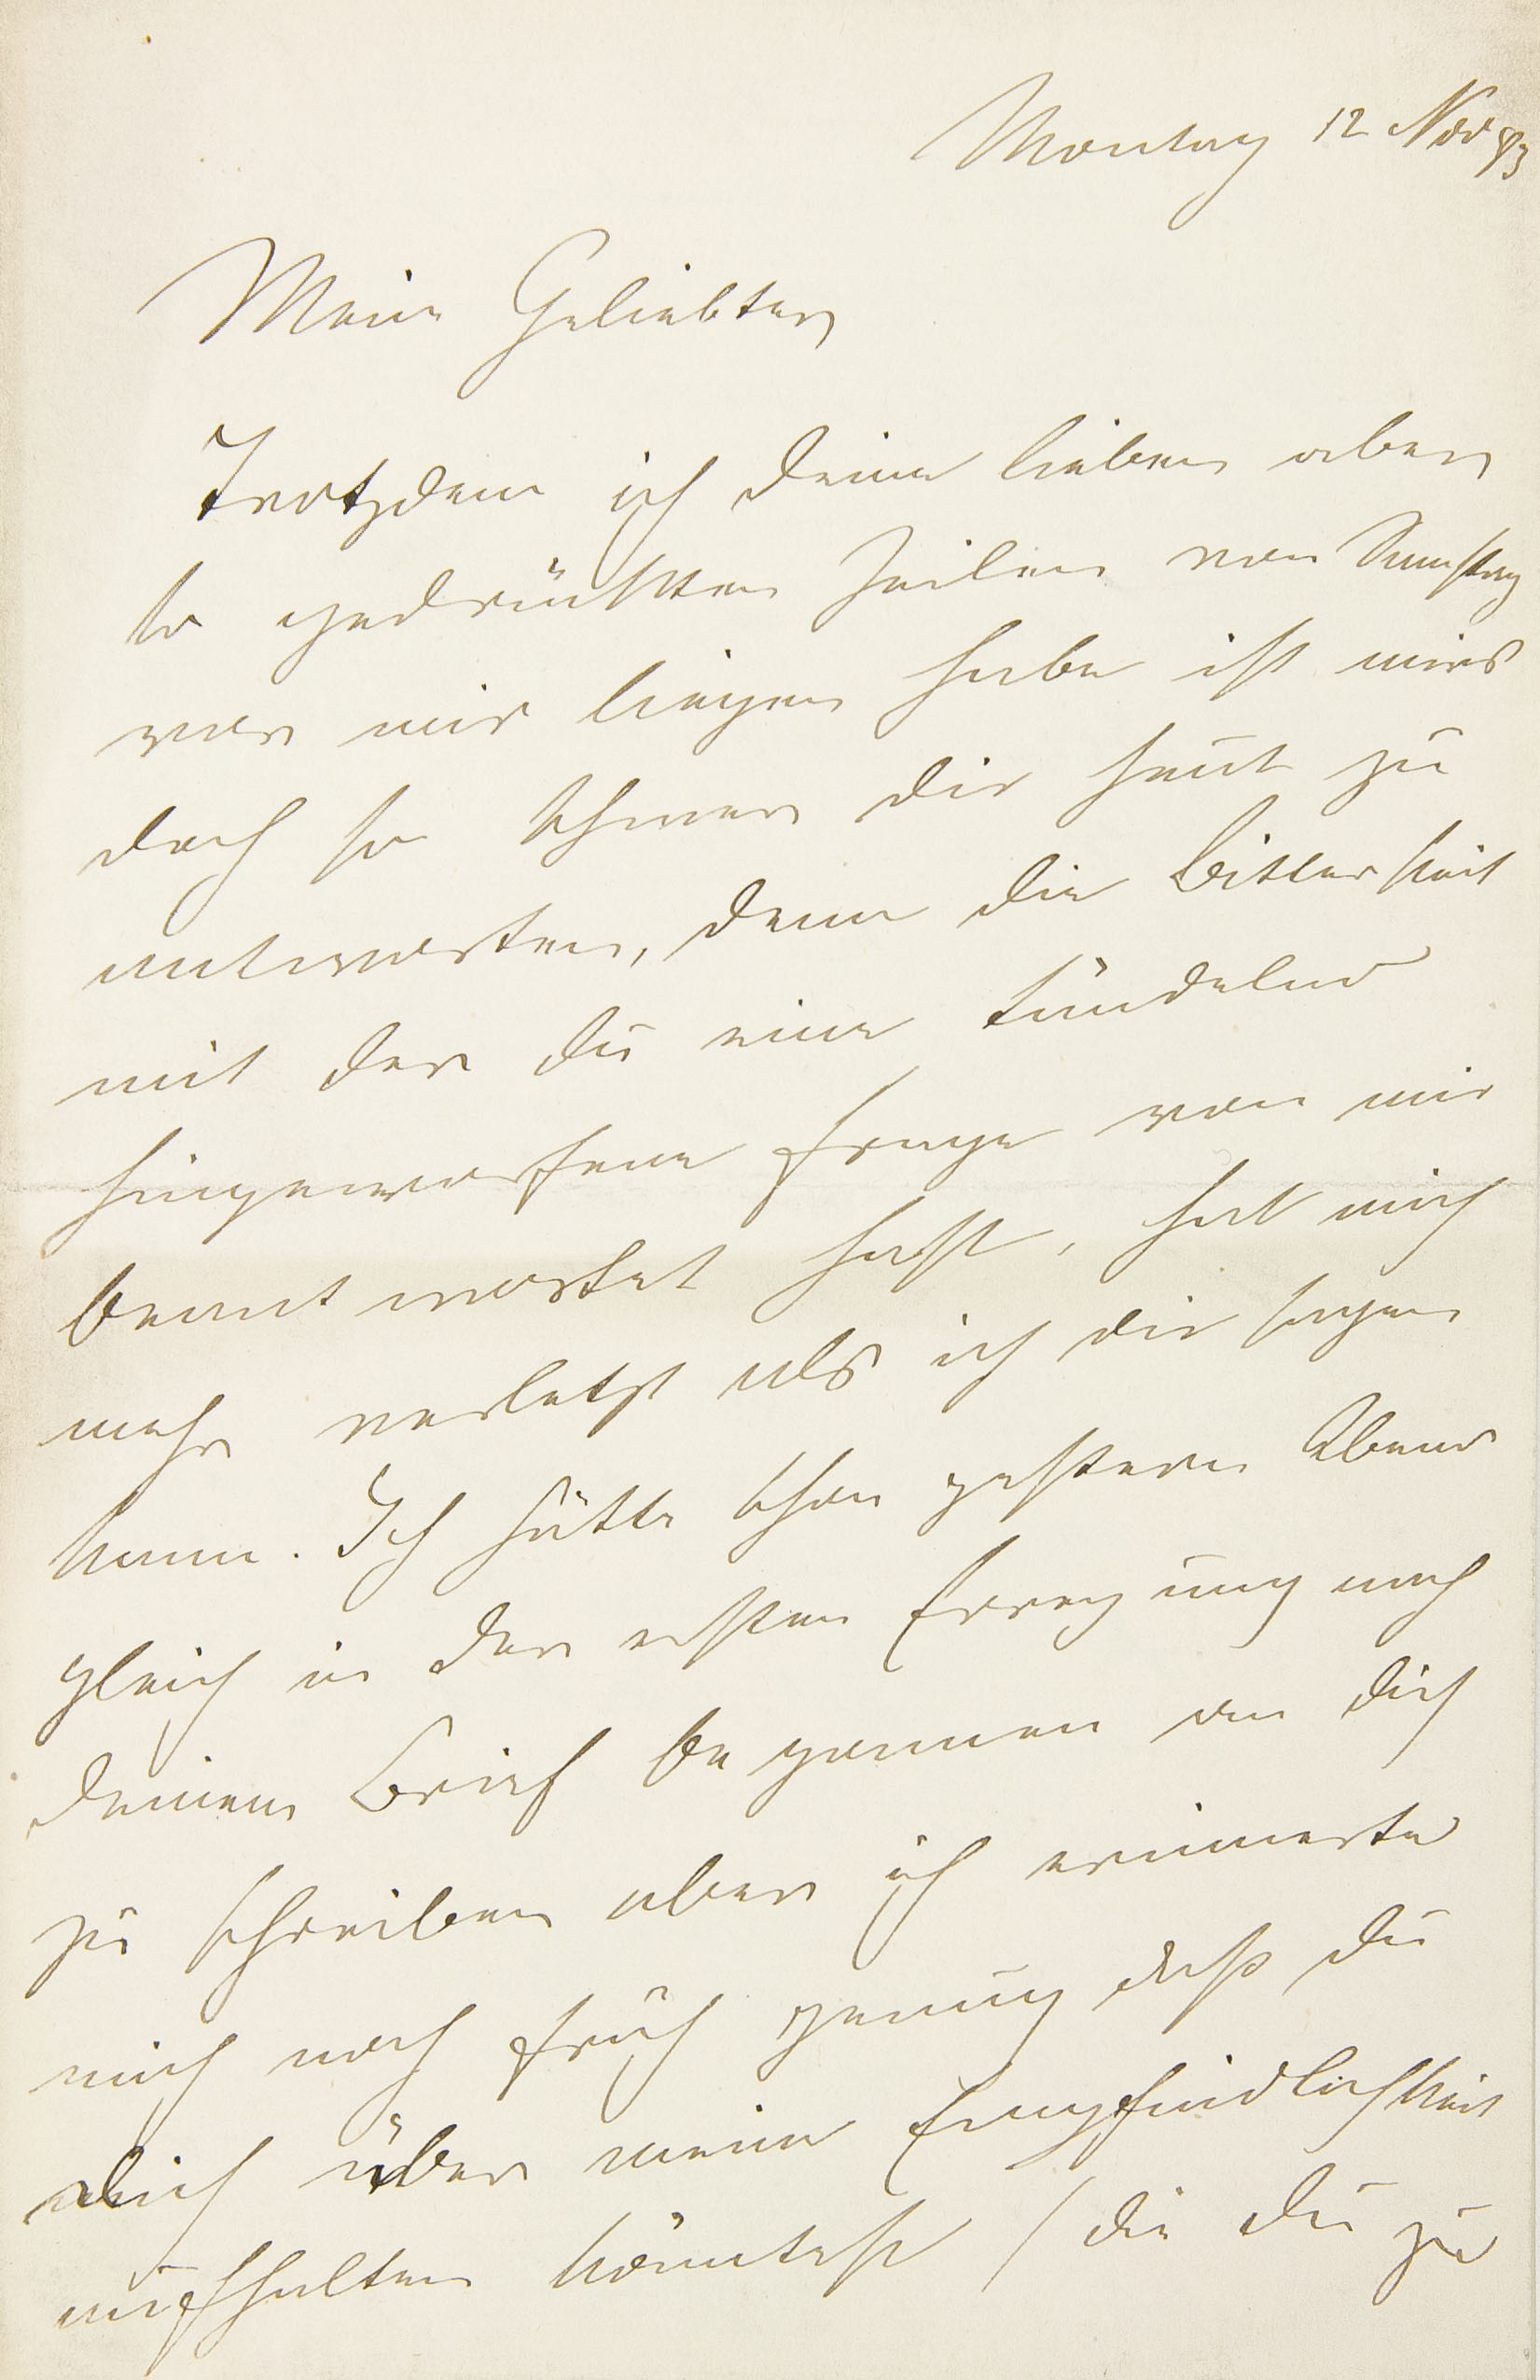 Montag 12 Nov 83
Mein Geliebter
Trotzdem ich deine lieben aber
so gedrückten Zeilen von Samstag
vor mir liegen habe ist mirs
doch so schwer dir heut zu
antworten, denn die Bitterkeit
mit der du eine tändelnd
hingeworfene Frage von mir
beantwortet hast, hat mich
mehr verletzt als ich dir sagen
kann. Ich hätte schon gestern Abend
gleich in der ersten Erregung nach
deinem Brief begonnen an dich
zu schreiben aber ich erinnerte
mich noch früh genug daß du
dich über meine Empfindlichkeit
aufhalten könntest / die du zu